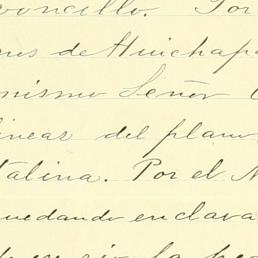 voncillo. Por
de Huichap
mismo Señor
lineas del plano
talina. Por el N
quedando enclava
la